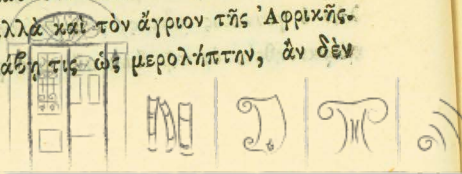 λλὰ καὶ τὸν ἄγριον τῆς Ἀφρικῆς.
άβῃ τις ὡς μερολήπτην, ἂν δὲν